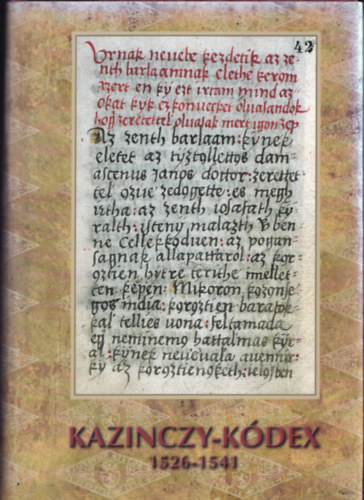 42
Urnak neuebe kezdetik az ze-
nth barlaamnak elethe kerom
azert en ky ezt irtam mind az
okat kyk ez konuecket oluasandok
hog zeretettel oluasak mert igon zep
Az zenth barlaam: kynek
eletet az tyztollettos dam-
ascenus ianos doctor: zerettet
tel ozue zedogette: es megh
irtha: az zenth iosafath ky
ralth: isteny malazth v ben-
ne cellekoduen: az pogan-
sagnak allapattarol: az kor-
oztien hytre terithe mellet-
ten kepen: Mikoron kozonse
gos india: koroztien baratok-
kal tellies vona: feltamada
eg neminemo hathalmas kyr-
al: kynek neue vala auennir:
ky az koroztienoketh: ielosben
KAZINCZY-KÓDEX
1526-1541